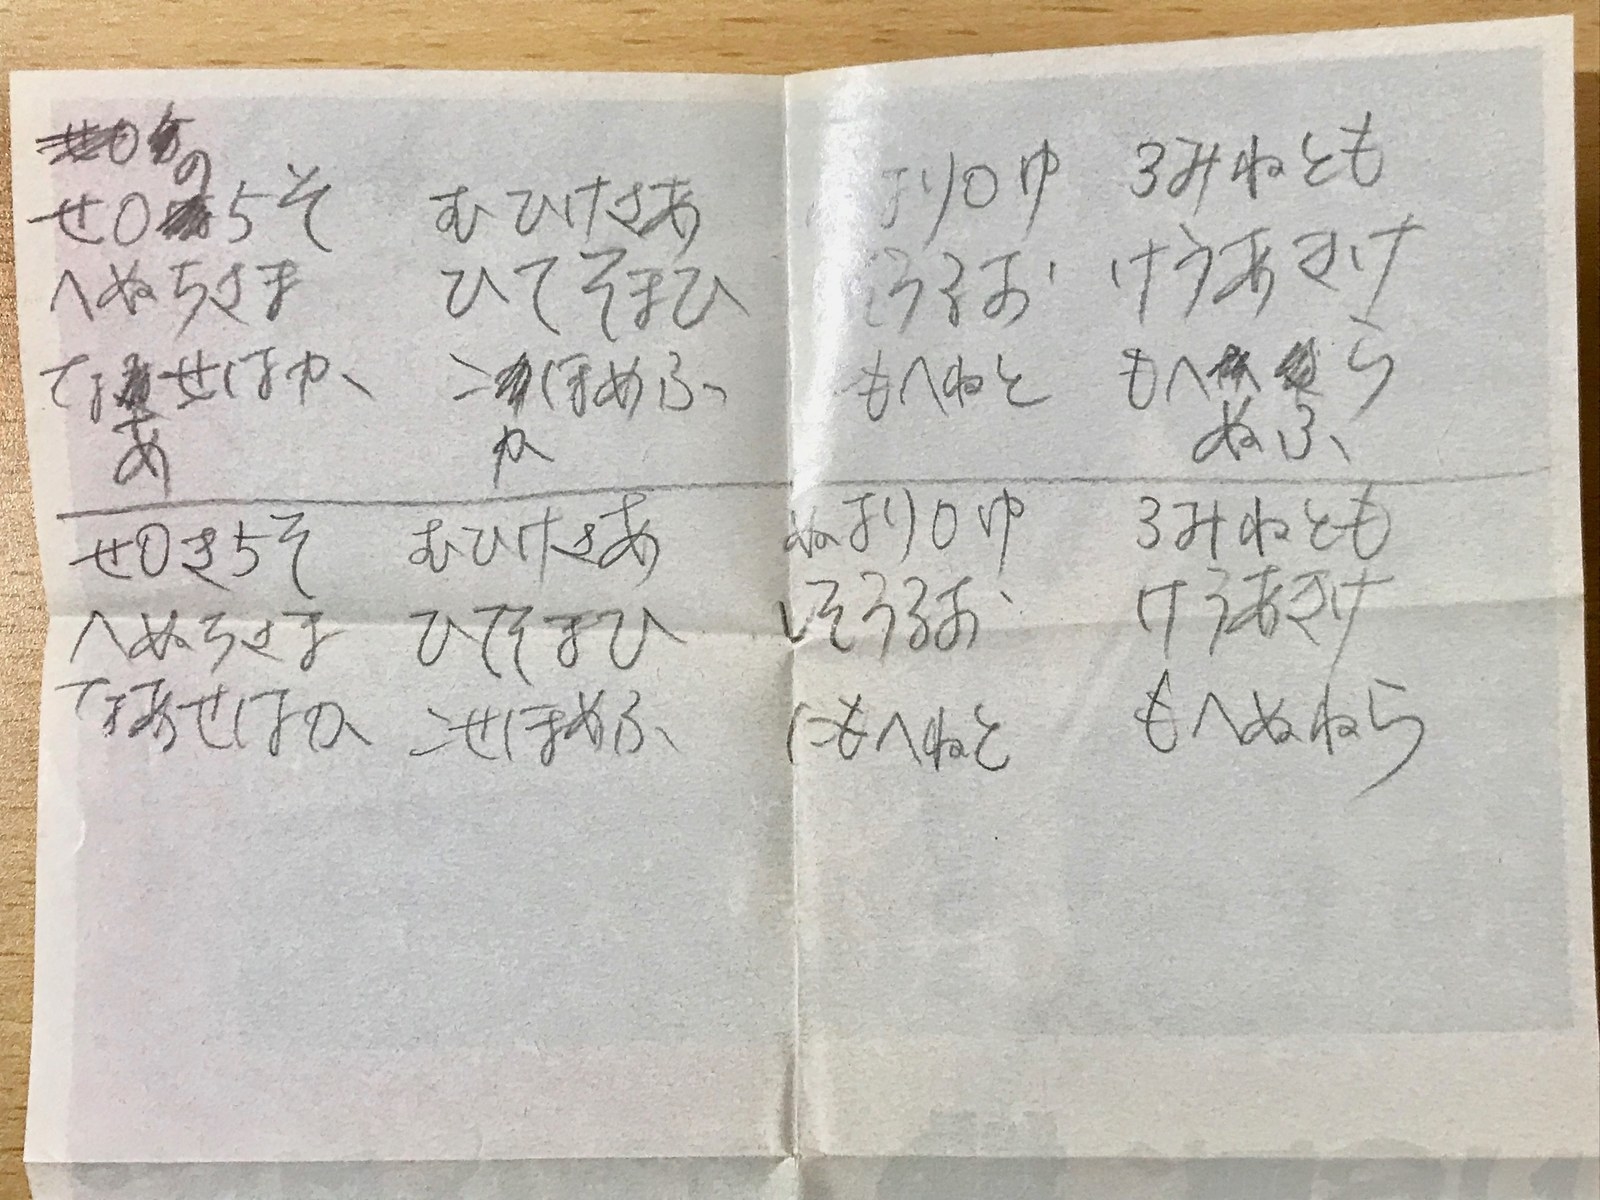 の
せ0ちそ むひけさあ まり0ゆ 3みねとも
へぬちさま ひてそまひ そうるお けうあさけ
てよせはか こほめふ もへねと もへら
あ か ぬふ
せ0きちそ むひけさあ ぬまり0ゆ 3みねとも
へぬろさま ひてそまひ しそうるお けうあさけ
てよあせほか こせほめふ にもへねと もへぬねら